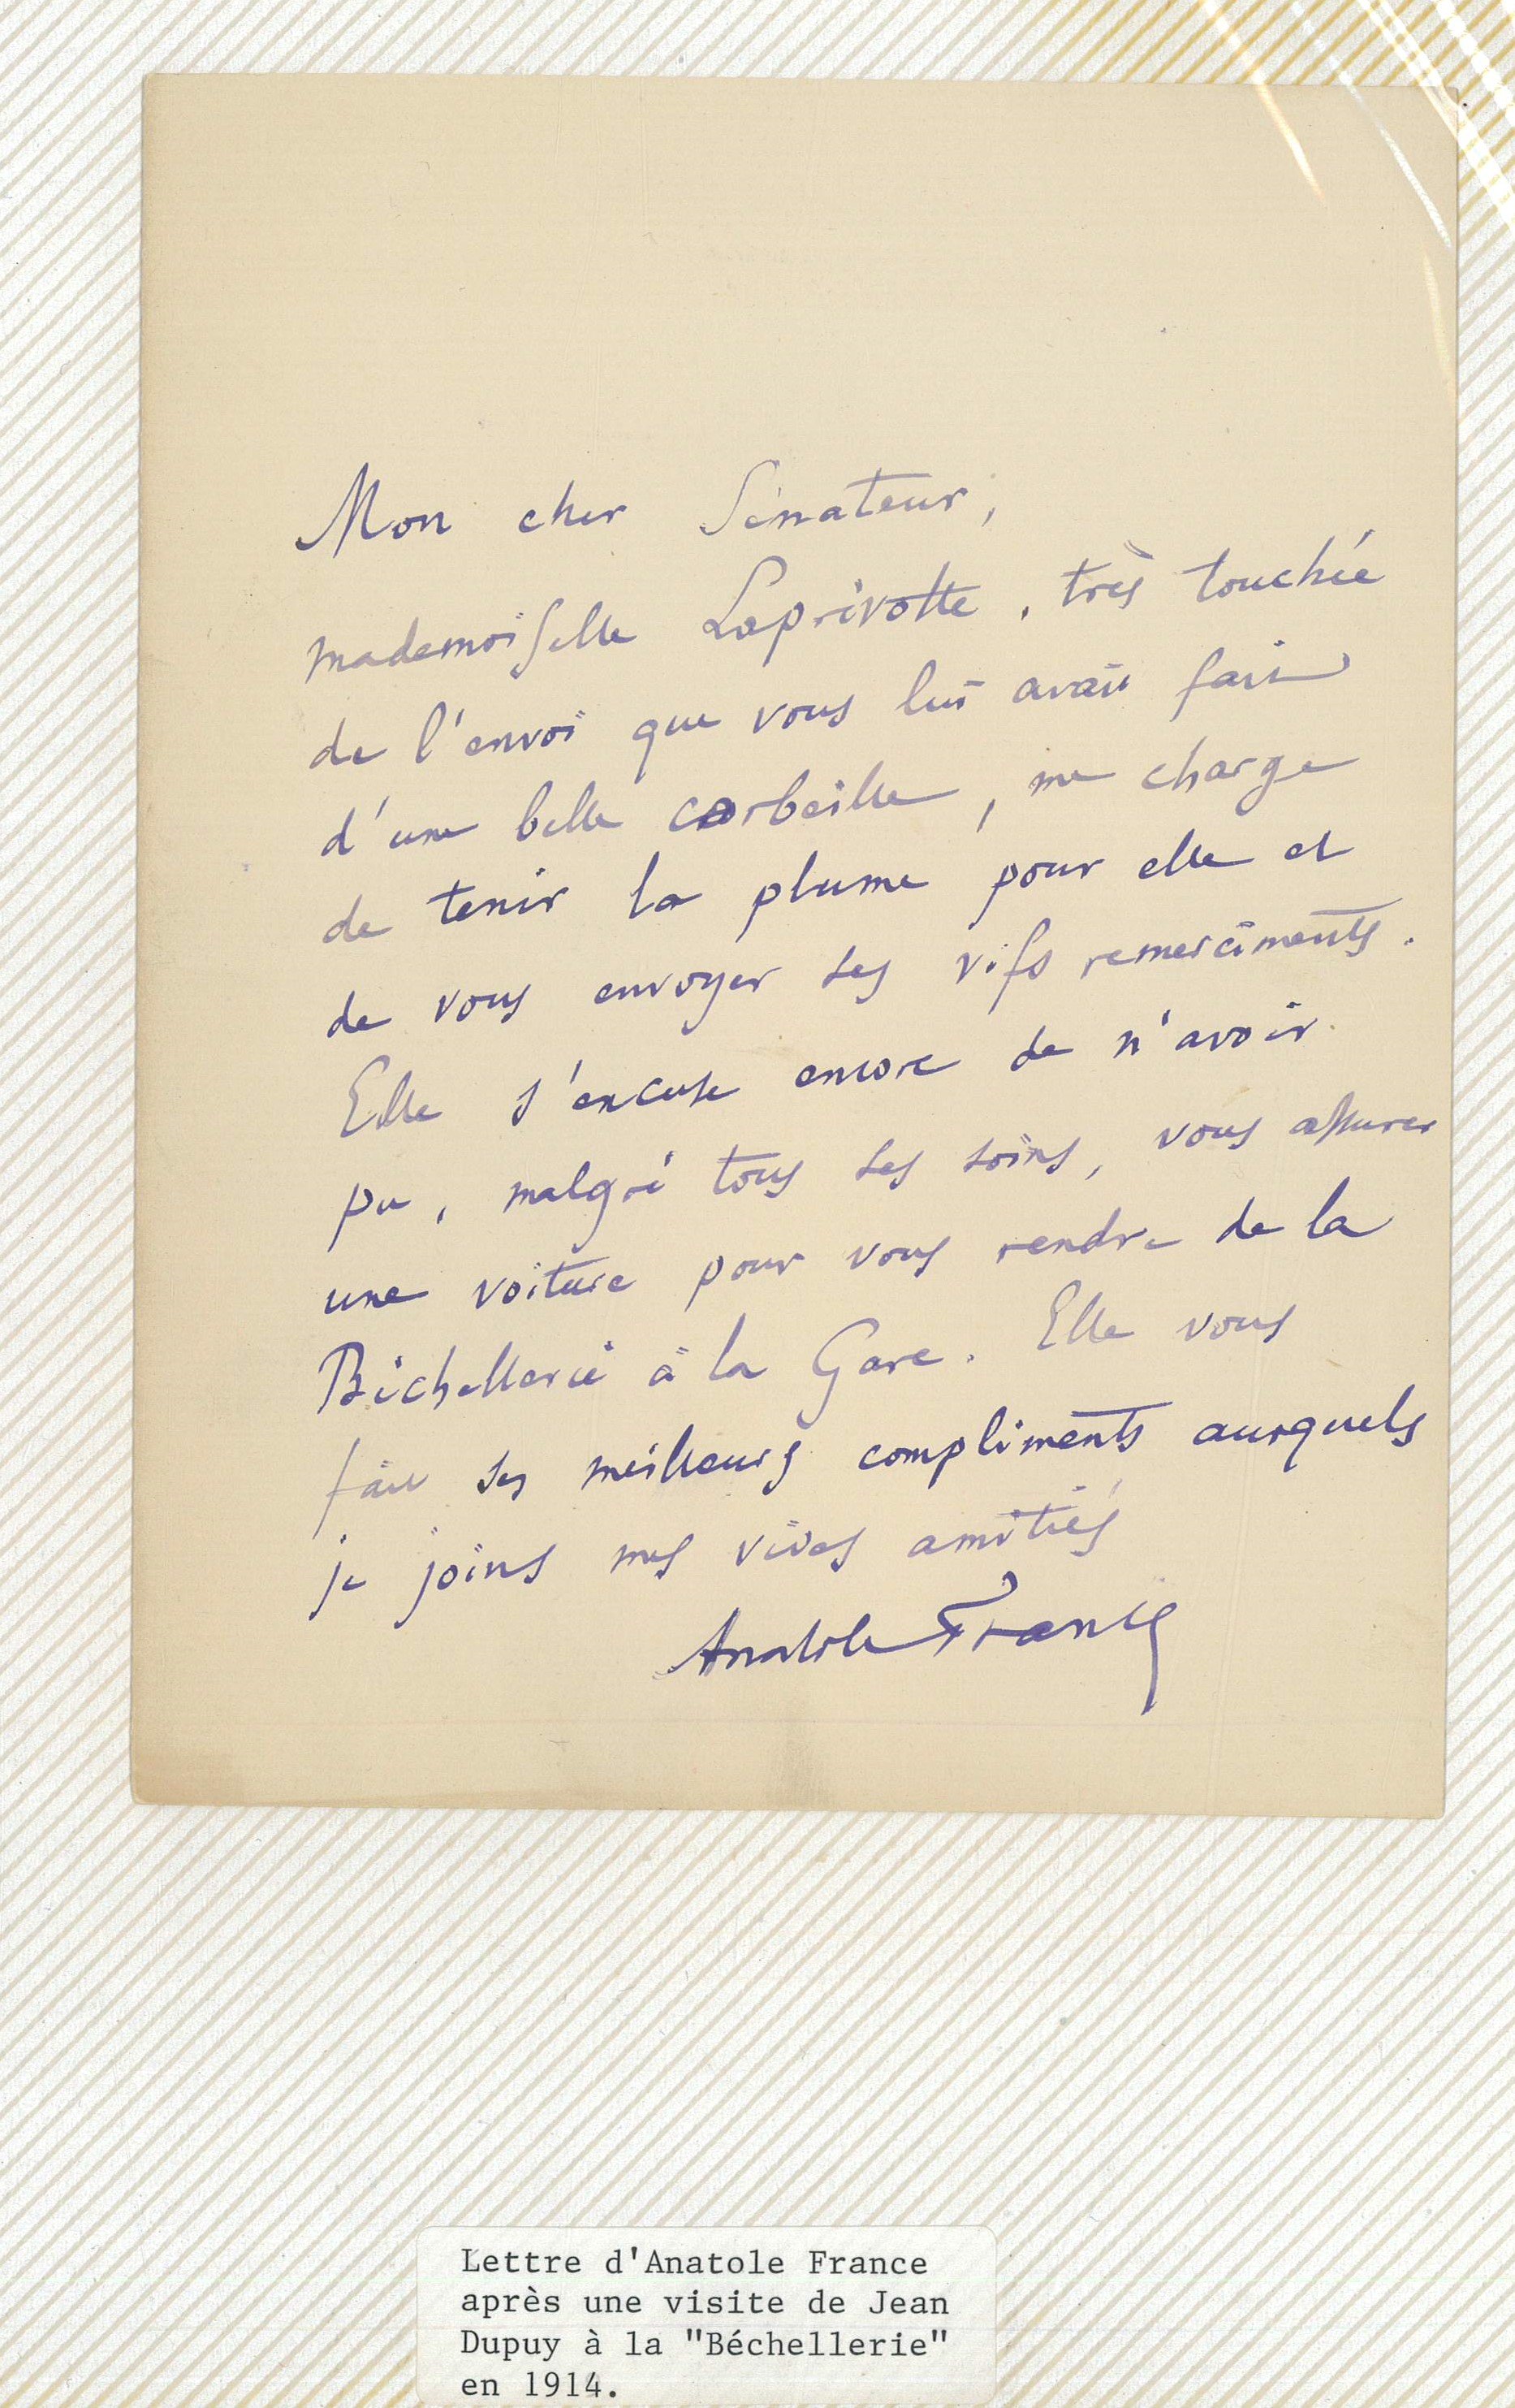 Mon cher Sénateur,
mademoiselle Laprévotte, très touchée
de l'envoi que vous lui avais fait
d'une belle corbeille, me charge
de tenir la plume pour elle et
de vous envoyer ses vifs remerciments.
Elle s'excuse encore de n'avoir
pu, malgré tous ses soins, vous assurer
une voiture pour vous rendre de la
Béchellerie à la Gare. Elle vous
fait ses meilleurs compliments auxquels
je joins mes vives amitiés
Anatole France
Lettre d'Anatole France
après une visite de Jean
Dupuy à la "Béchellerie"
en 1914.